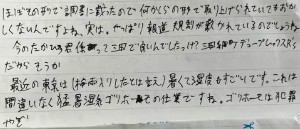 ほぼその形で調書に載ったので何からの形で取り上げられていてもおか
しくないんですよね。実は。やっぱり報道規制が敷かれているでしょうね
今のたかひろ君係って三田で食いしんでしたっけ?三田線デュープレックスRs
だから そうか
最近の東京は(梅雨入りしたとは言え)暑くて湿度もすごいです。これは
間違いなく猛暑湿気ゴリホーモの仕業ですね。ゴリホーモは犯罪
やぞ